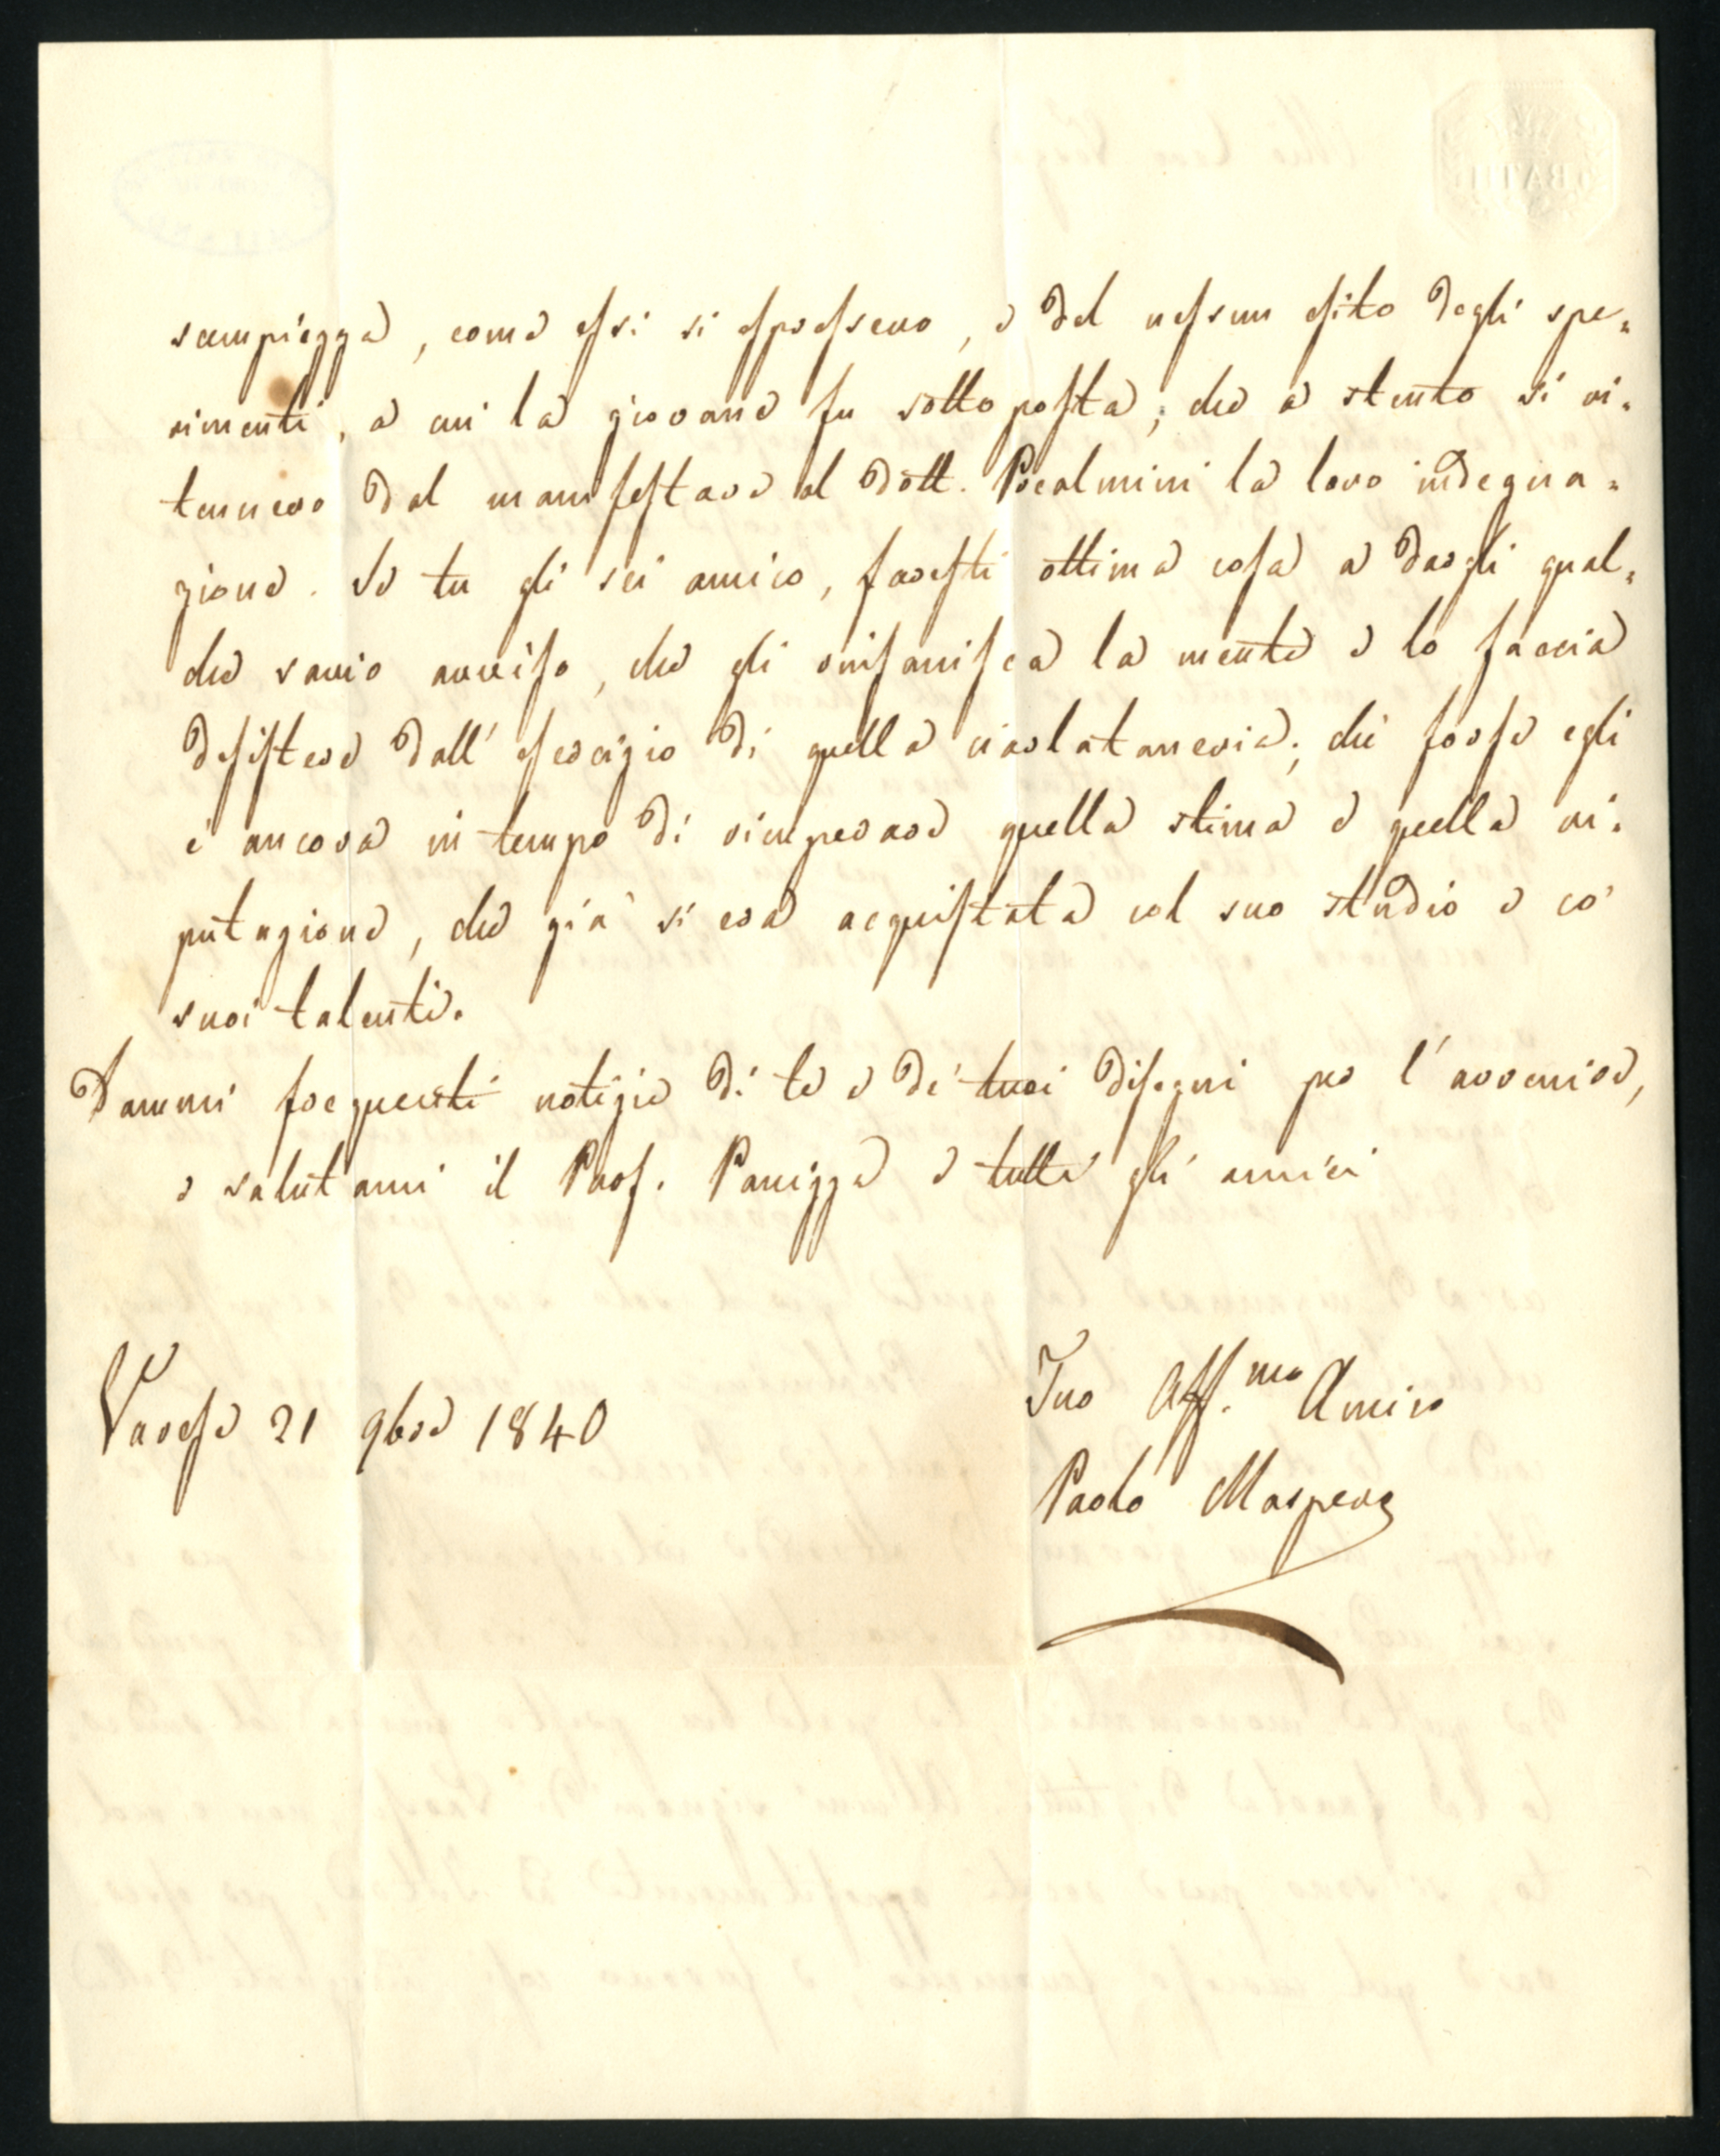 scempiezza, come essi si espressero, e del nessun esito degli spe=
rimenti, a cui la giovane fu sottoposta; che a stento si ri=
tennero dal manifestare al Dott. Porcalmini la loro indegna=
zione. Se tu gli sei amico, faresti ottima cosa a dargli qual=
che savio avviso, che gli risanisca la mente e lo faccia
desistere dall' esercizio di quella ciarlataneria; chè forse egli
è ancora in tempo di ricuperare quella stima e quella ri=
putazione, che già si era acquistata col suo studio e co'
suoi talenti.
Dammi frequenti notizie di te e de' tuoi disegni per l'avvenire,
e salutami il Prof. Panizza e tutti gli amici
Tuo Aff.mo Amico
Varese 21 9bre 1840
Paolo Maspero